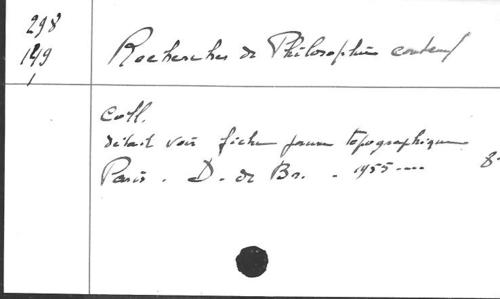 298
149
1
Recherches de Philosophie contemp
coll.
détail voir fiche jaune topographique
Paris . D. de Br. . 1955 ---- 8°